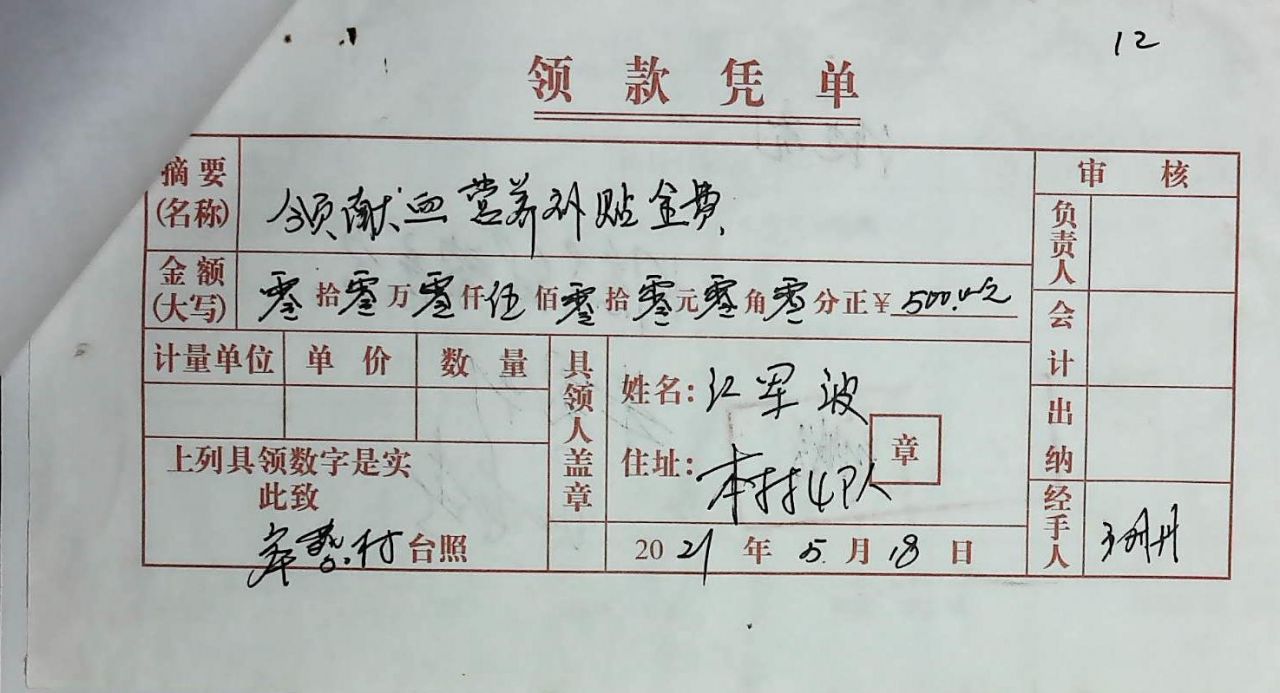 12
领款凭单
摘要(名称) 领献血营养补贴金费 审核
负责人
金额(大写) 零拾零万零仟伍佰零拾零元零角零分正￥500.00元
会计
计量单位 单价 数量 具领人盖章 姓名:江军波
出纳
住址:本村4队 章
上列具领数字是实
此致
村台照 2021年5月18日 经手人